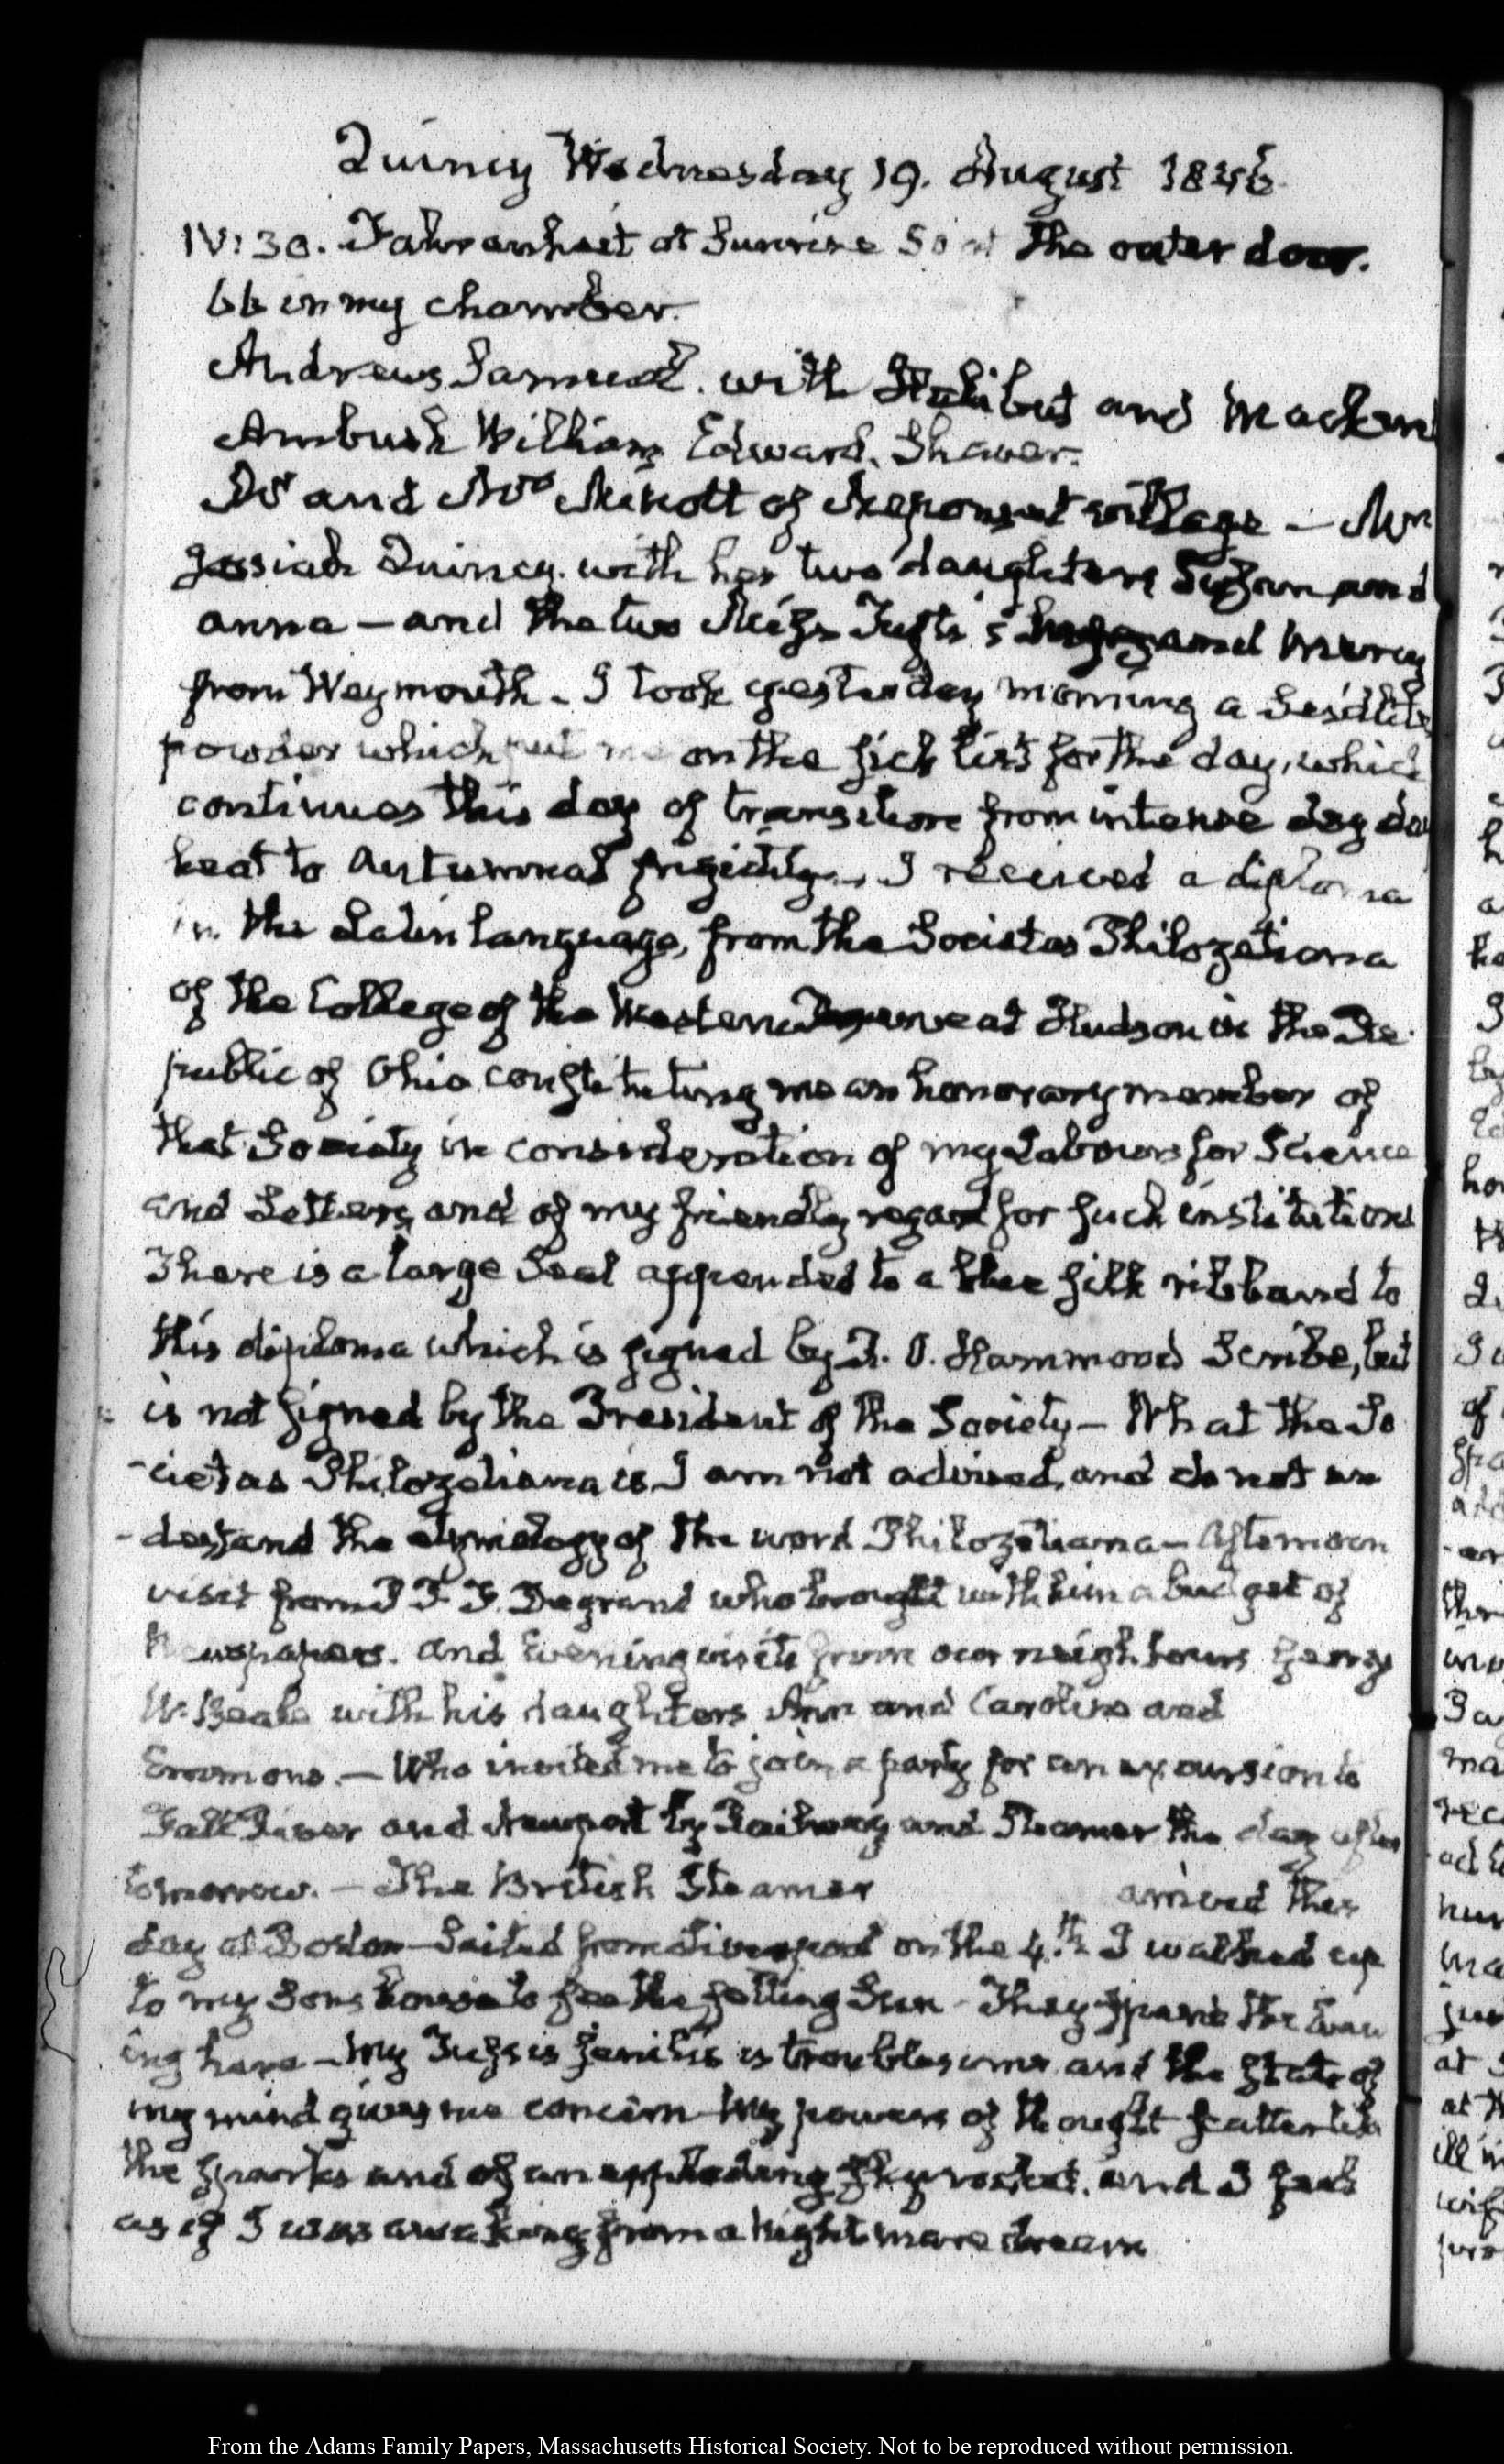 Quincy Wednesday 19. August 1846.
IV:30. Fahrenheit at Sunrise 50 at the outer door.
66 in my chamber.
Andrews Samuel. with Halibut and Macken
Ambush William Edward. Shaver.
Dr and Mrs Minott of Neponset village — Mrs
Josiah Quincy. with her two daughters Suzan and
anna — and the two Miss Tufts's and Mercy
from Weymouth. I took yesterday morning a Seidlitz
powder which put me on the sick list for the day, which
continues this day of transition from intense dog day
heat to Autumnal frigidity. I received a diploma
in the Latin language, from the Societas Philozetiana
of the College of the Western Reserve at Hudson in the Re
public of Ohio constituting me an honorary member of
that Society in consideration of my Labours for Science
and Letters, and of my friendly regard for such institutions
There is a large Seal appended to a blue silk ribband to
this diploma which is signed by F. O. Hammond Scribe, but
is not signed by the President of the Society — What the So
-cietas Philozetiana is I am not advised, and do not un
-destand the etymology of the word Philozetiana — Afternoon
visit from P P F. Degrand who brought with him a budget of
Newspapers. and Evening visits from our neighbours George
W. Beale with his daughters Ann and Caroline and
Emmons. — Who invited me to join a party for an excursion to
Fall River and Newport by Railway and Steamer the day after
tomorrow. — The British Steamer arrived this
day at Boston — Sailed from Liverpool on the 4.th I walked up
to my Sons house to see the setting Sun — They spare the
ing here — My Tussis senilis is troublesome and the state of
my mind gives me concern My powers of thought scatter like
the sparks and of an exploding skyrocket. and I feel
as if I was awaking from a Nightmare dream